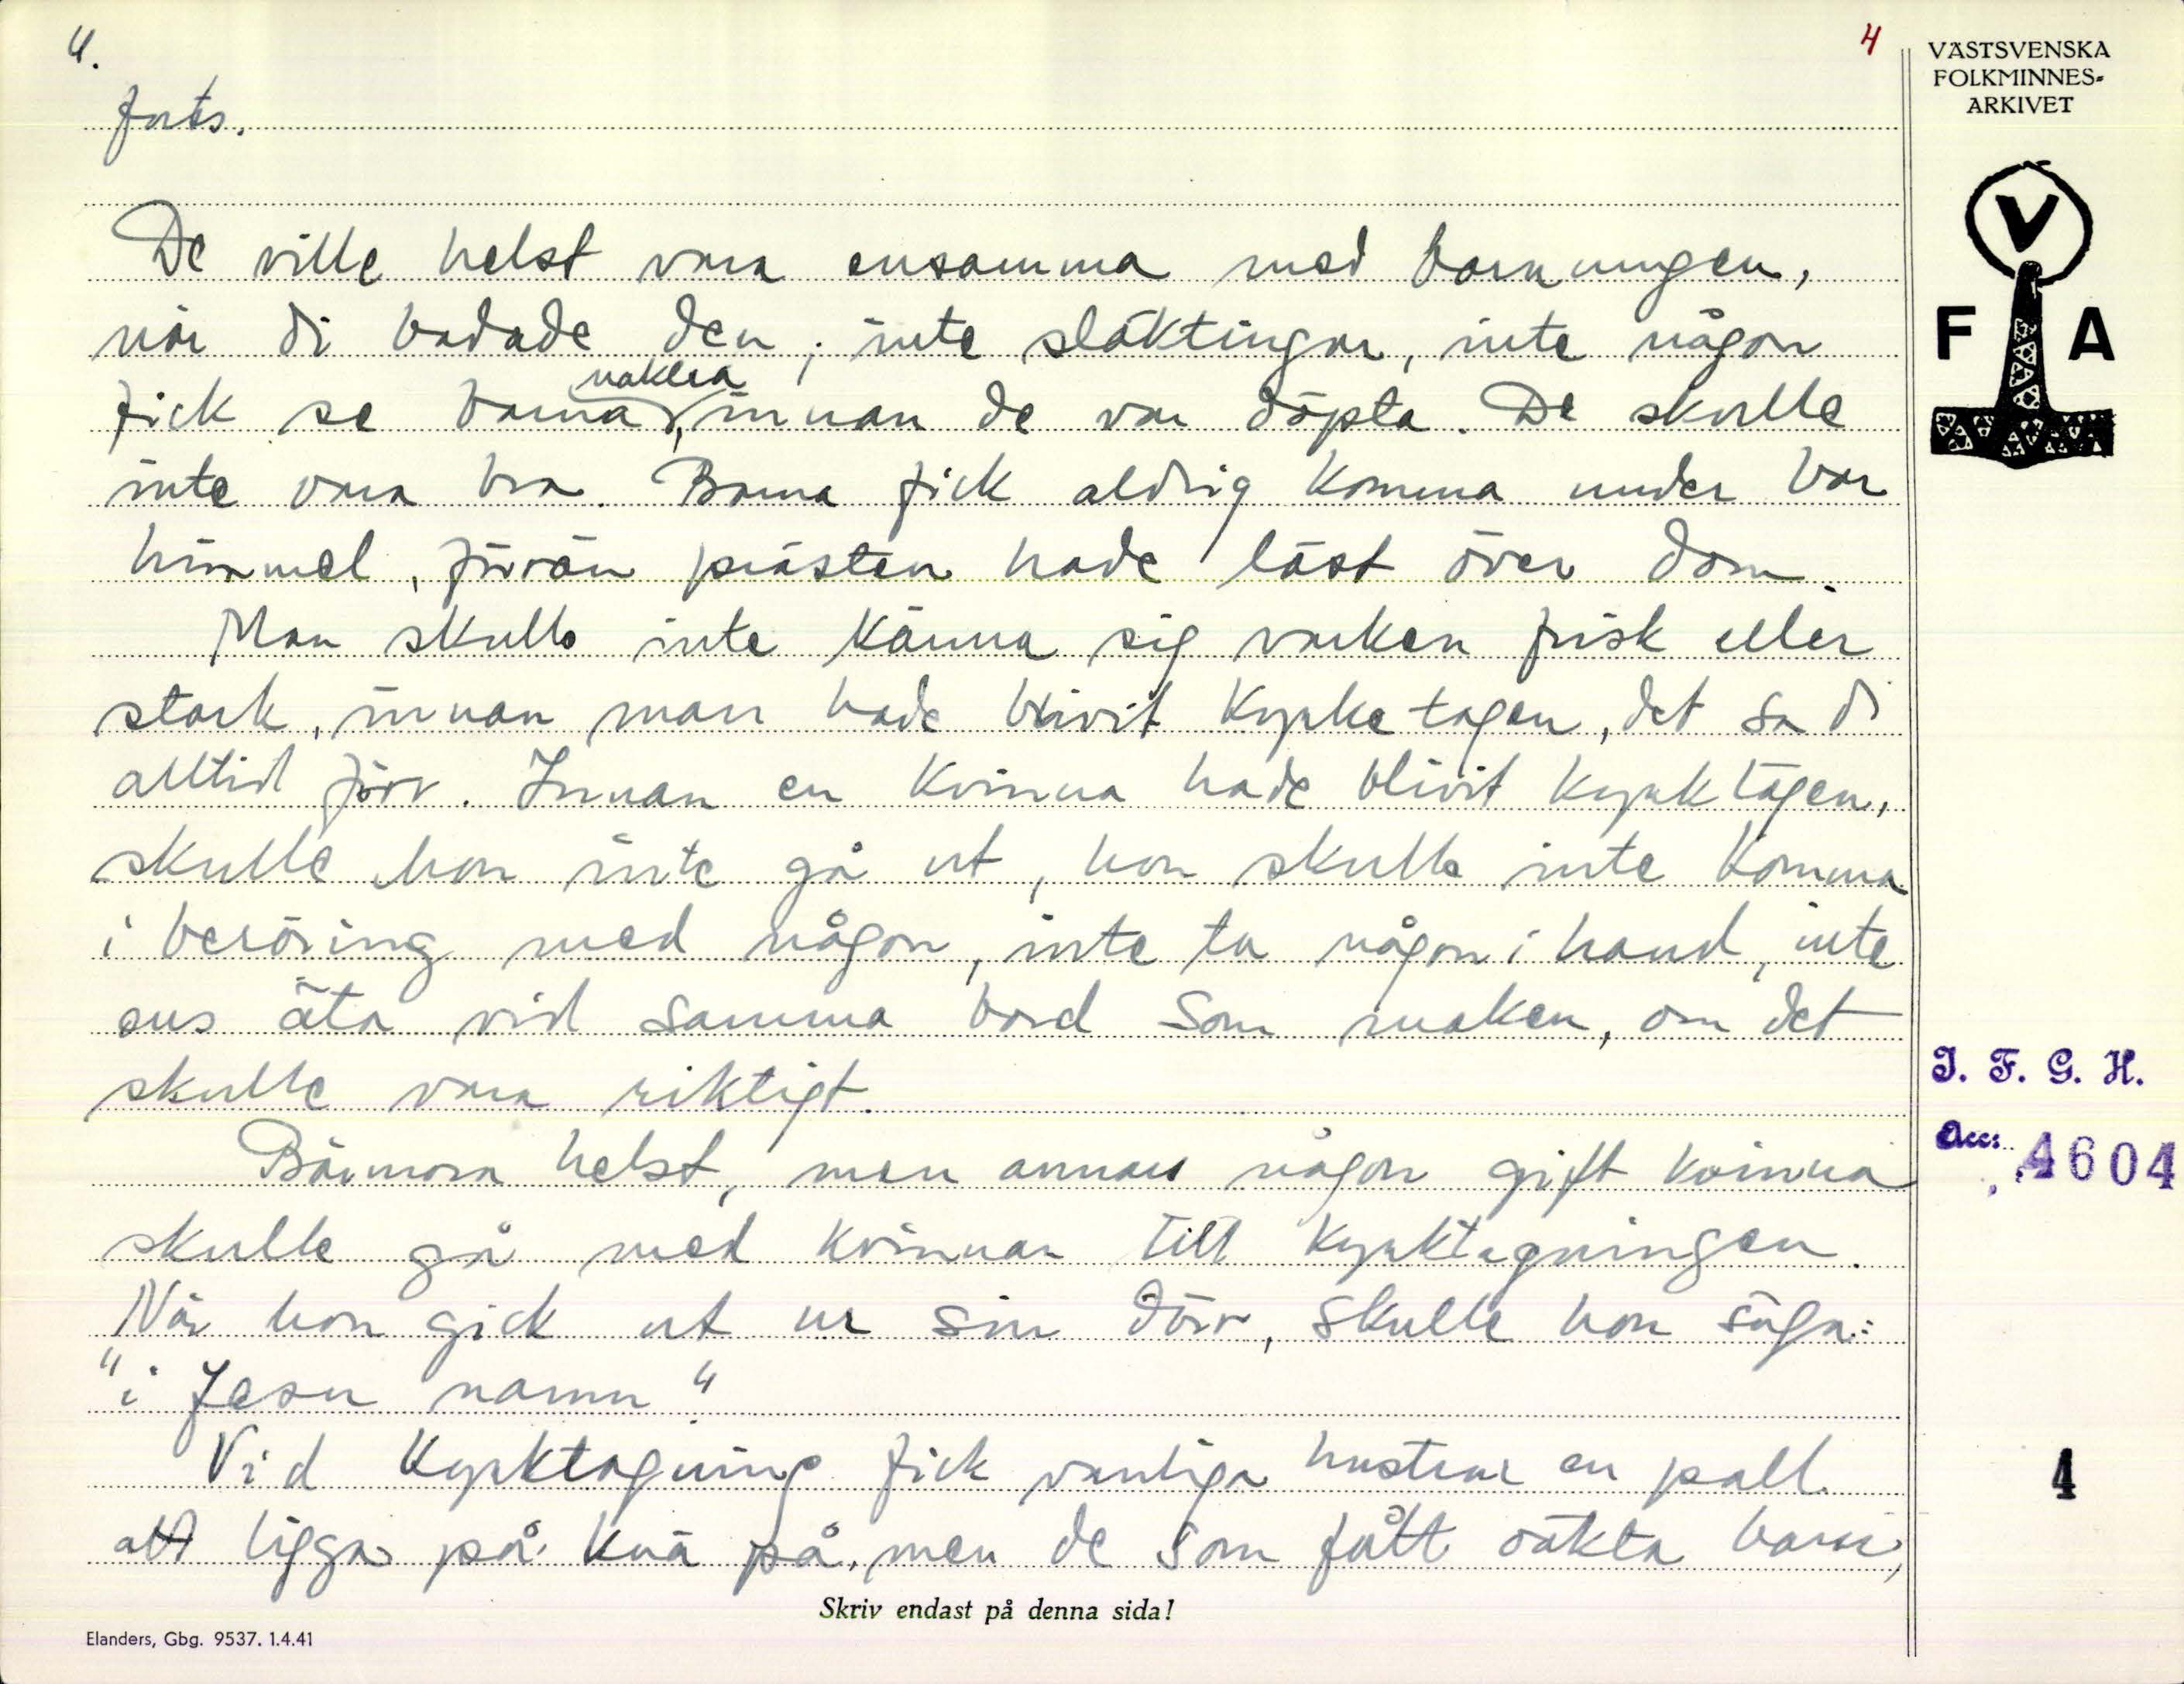 4.
4
VÄSTSVENSKA
FOLKMINNES-
ARKIVET
forts.
De ville helst vara ensamma med barnungen,
när di badade den; inte släktingar, inte någon
fick se barna nakna, innan de var döpta. De skulle
inte vara bra. Barna fick aldrig komma under bar
himmel, förrän prästen hade läst över dom.
Man skulle inte känna sig varken frisk eller
stark, innan man hade blivit kyrketagen, det sa di
alltid förr. Innan en kvinna hade blivit kyrktagen,
skulle hon inte gå ut, hon skulle inte komma
i beröring med någon, inte ta någon i hand, inte
ens äta vid samma bord som maken, om det
skulle vara riktigt.
Barnmora helst, men annars någon gift kvinna
skulle gå med kvinnan till kyrktagningen.
När hon gick ut ur sin dörr, skulle hon säga:
"i Jesu namn"
Vid kyrktagning fick vanliga hustrur en pall
att ligga på knä på, men de som fått oäkta barn,
V
F A
I. F. G. H.
Acc. 4604
4
Skriv endast på denna sida!
Elanders, Gbg. 9537. 1.4.41